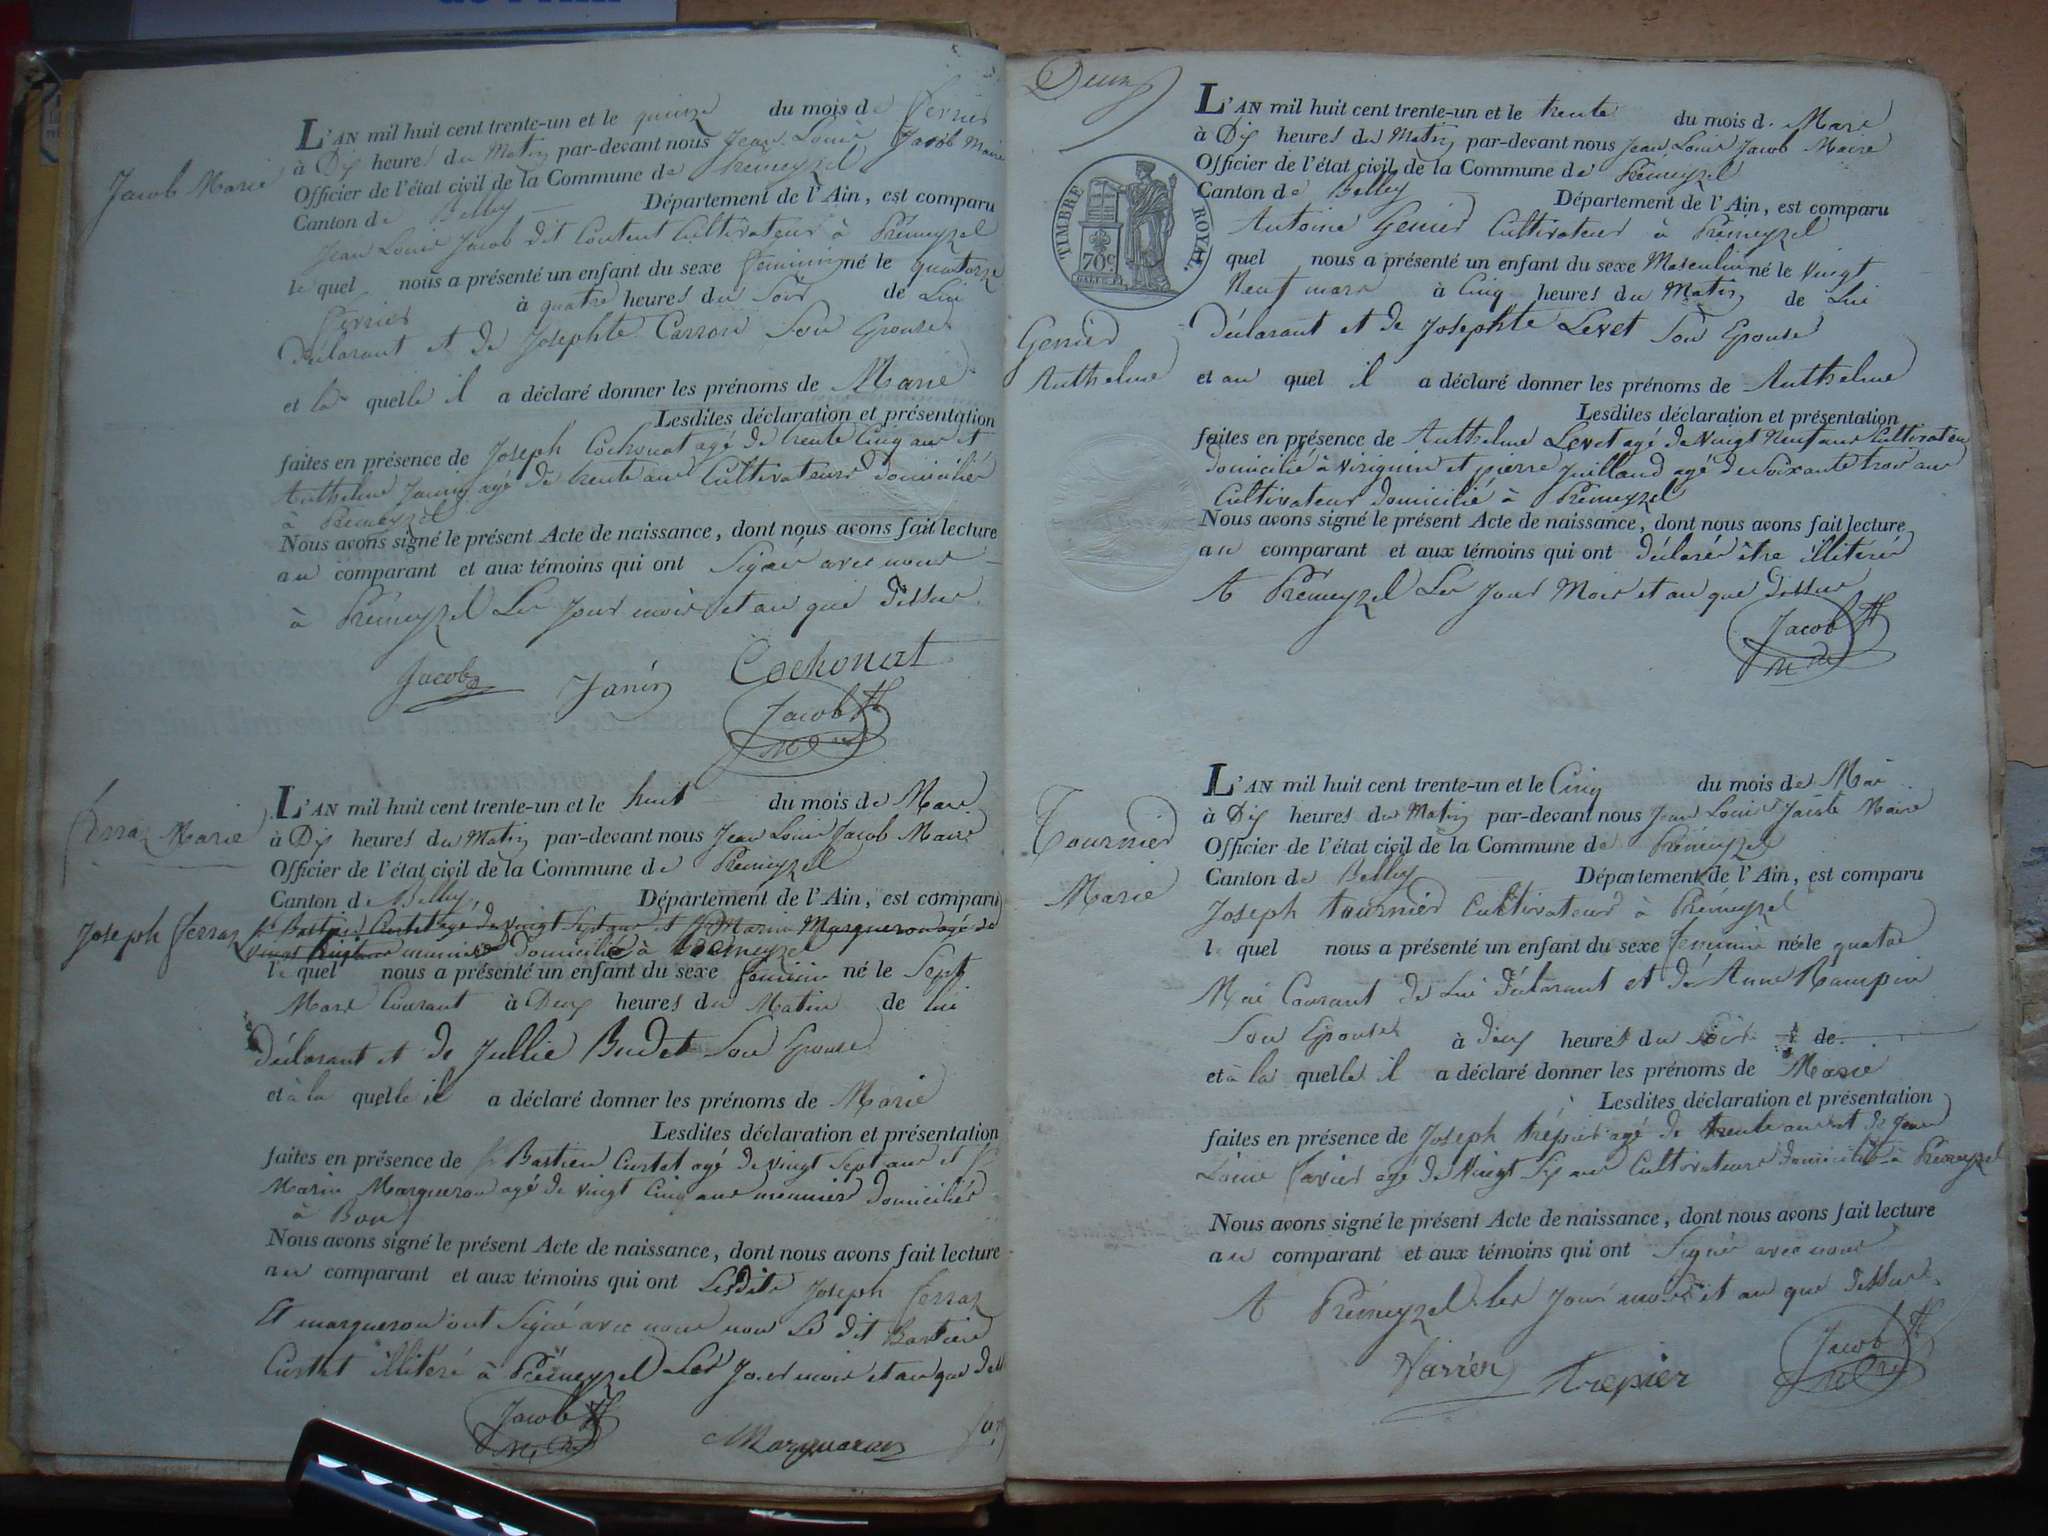 Jacob Marie
L'AN mil huit cent trente-un et le quinze du mois de fevrier
à Dix heures du Matin par-devant nous Jean Louis Jacob Maire
Officier de l'état civil de la Commune de Prémeyzel
Canton de Belley Département de l'Ain, est comparu
Jean Louis Jacob dit Coutent Cultivateur à Prémeyzel
le quel nous a présenté un enfant du sexe feminin né le quatorze
fevrier à quatre heures du Soir de Lui
Déclarant et de Josephte Carron Son Epouse
et la quelle il a déclaré donner les prénoms de Marie
Lesdites déclaration et présentation
faites en présence de Joseph Cochonat agé de trente Cinq ans et
Anthelme Janin agé de trente ans Cultivateurs domiciliés
à Prémeyzel
Nous avons signé le présent Acte de naissance, dont nous avons fait lecture
au comparant et aux témoins qui ont Signés avec nous
à Prémeyzel Les Jour mois et an que dessus
Jacob Janin Cochonat
Jacob
ferraz Marie
Joseph ferraz
L'AN mil huit cent trente-un et le huit du mois de Mars
à Dix heures du Matin par-devant nous Jean Louis Jacob Maire
Officier de l'état civil de la Commune de Prémeyzel
Canton de Belley Département de l'Ain, est comparu
Bastien Curtet agé de vingt Sept ans et Marin Margueron agé de
vingt Cinq ans meunier domicilié à Prémeyzel
le quel nous a présenté un enfant du sexe feminin né le Sept
Mars Courant à Deux heures du Matin de lui
déclarant et de Jullie Budet Son Epouse
et à la quelle il a déclaré donner les prénoms de Marie
Lesdites déclaration et présentation
faites en présence de Bastien Curtet agé de vingt Sept ans et
Marin Margueron agé de vingt Cinq ans meunier domiciliés
à Bons
Nous avons signé le présent Acte de naissance, dont nous avons fait lecture
au comparant et aux témoins qui ont Lesdits Joseph ferraz
Et margueron ont Signé avec nous non Le dit Bastien
Curtet illitéré à Prémeyzel Les Jour mois et an que dessus
Jacob Margueron
Deux
TIMBRE ROYAL
70c
Genier
Anthelme
L'AN mil huit cent trente-un et le trente du mois de Mars
à Dix heures du Matin par-devant nous Jean Louis Jacob Maire
Officier de l'état civil de la Commune de Prémeyzel
Canton de Belley Département de l'Ain, est comparu
Antoine Genier Cultivateur à Prémeyzel
quel nous a présenté un enfant du sexe Masculin né le Vingt
Neuf mars à Cinq heures du Matin de Lui
Déclarant et de Josephte Levet Son Epouse
et au quel il a déclaré donner les prénoms de Anthelme
Lesdites déclaration et présentation
faites en présence de Anthelme Levet agé de Vingt Neuf ans Cultivateur
domicilié à Virignin et pierre Juilland agé de Soixante trois ans
Cultivateur domicilié à Prémeyzel
Nous avons signé le présent Acte de naissance, dont nous avons fait lecture
au comparant et aux témoins qui ont déclarés être illitérés
A Prémeyzel Les Jour Mois et an que Dessus
Jacob
Tournier
Marie
L'AN mil huit cent trente-un et le Cinq du mois de Mai
à Dix heures du Matin par-devant nous Jean Louis Jacob Maire
Officier de l'état civil de la Commune de Prémeyzel
Canton de Belley Département de l'Ain, est comparu
Joseph tournier Cultivateur à Prémeyzel
le quel nous a présenté un enfant du sexe feminin né le quatre
Mai Courant de Lui déclarant et de Anne Rampin
Son Epouse à deux heures du Soir de
et à la quelle il a déclaré donner les prénoms de Marie
Lesdites déclaration et présentation
faites en présence de Joseph trépier agé de trente ans et de Jean
Louis favier agé de Vingt Six ans Cultivateurs domiciliés à Prémeyzel
Nous avons signé le présent Acte de naissance, dont nous avons fait lecture
au comparant et aux témoins qui ont Signés avec nous
A Prémeyzel les Jour mois et an que dessus
trepier Jacob